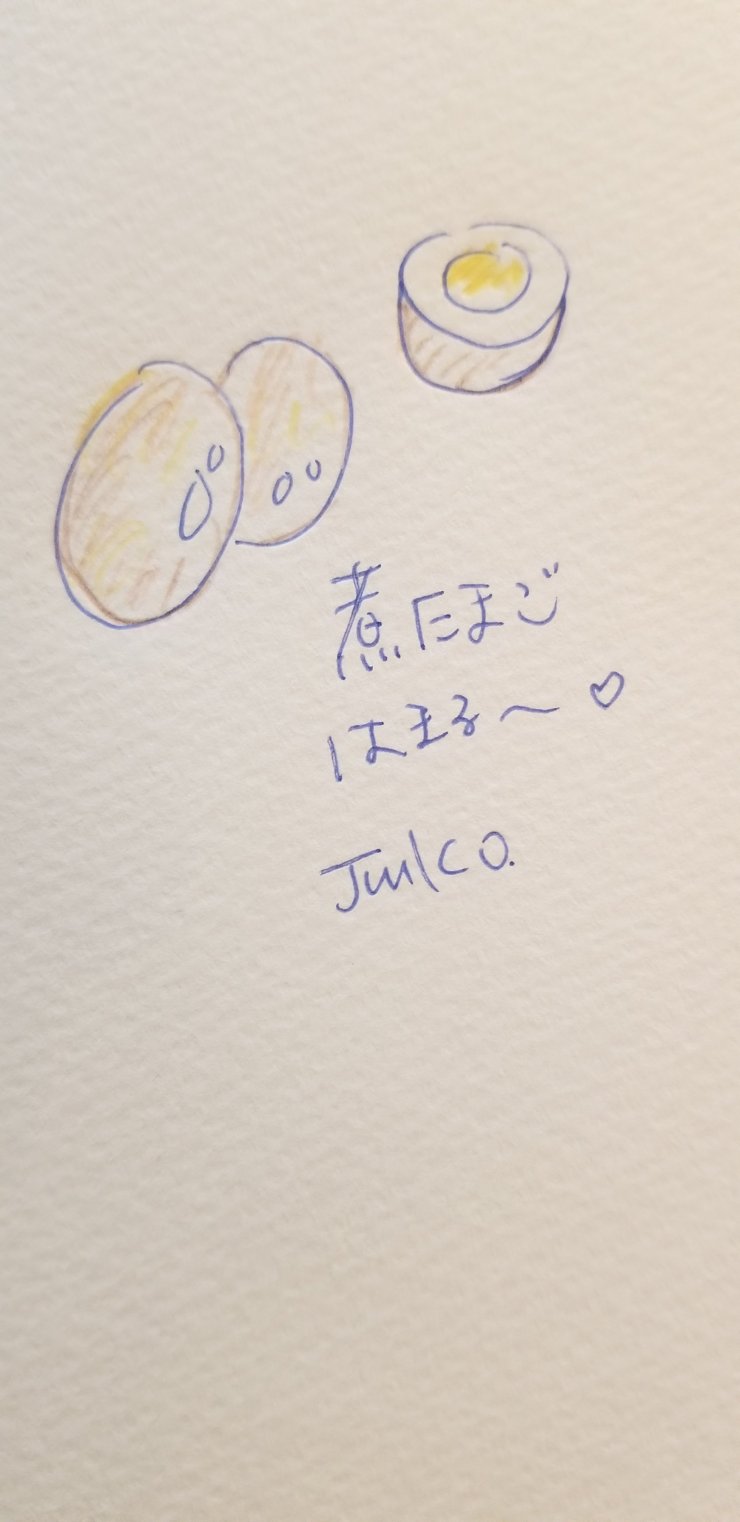 煮たまご
はまる〜♡
JunKO.